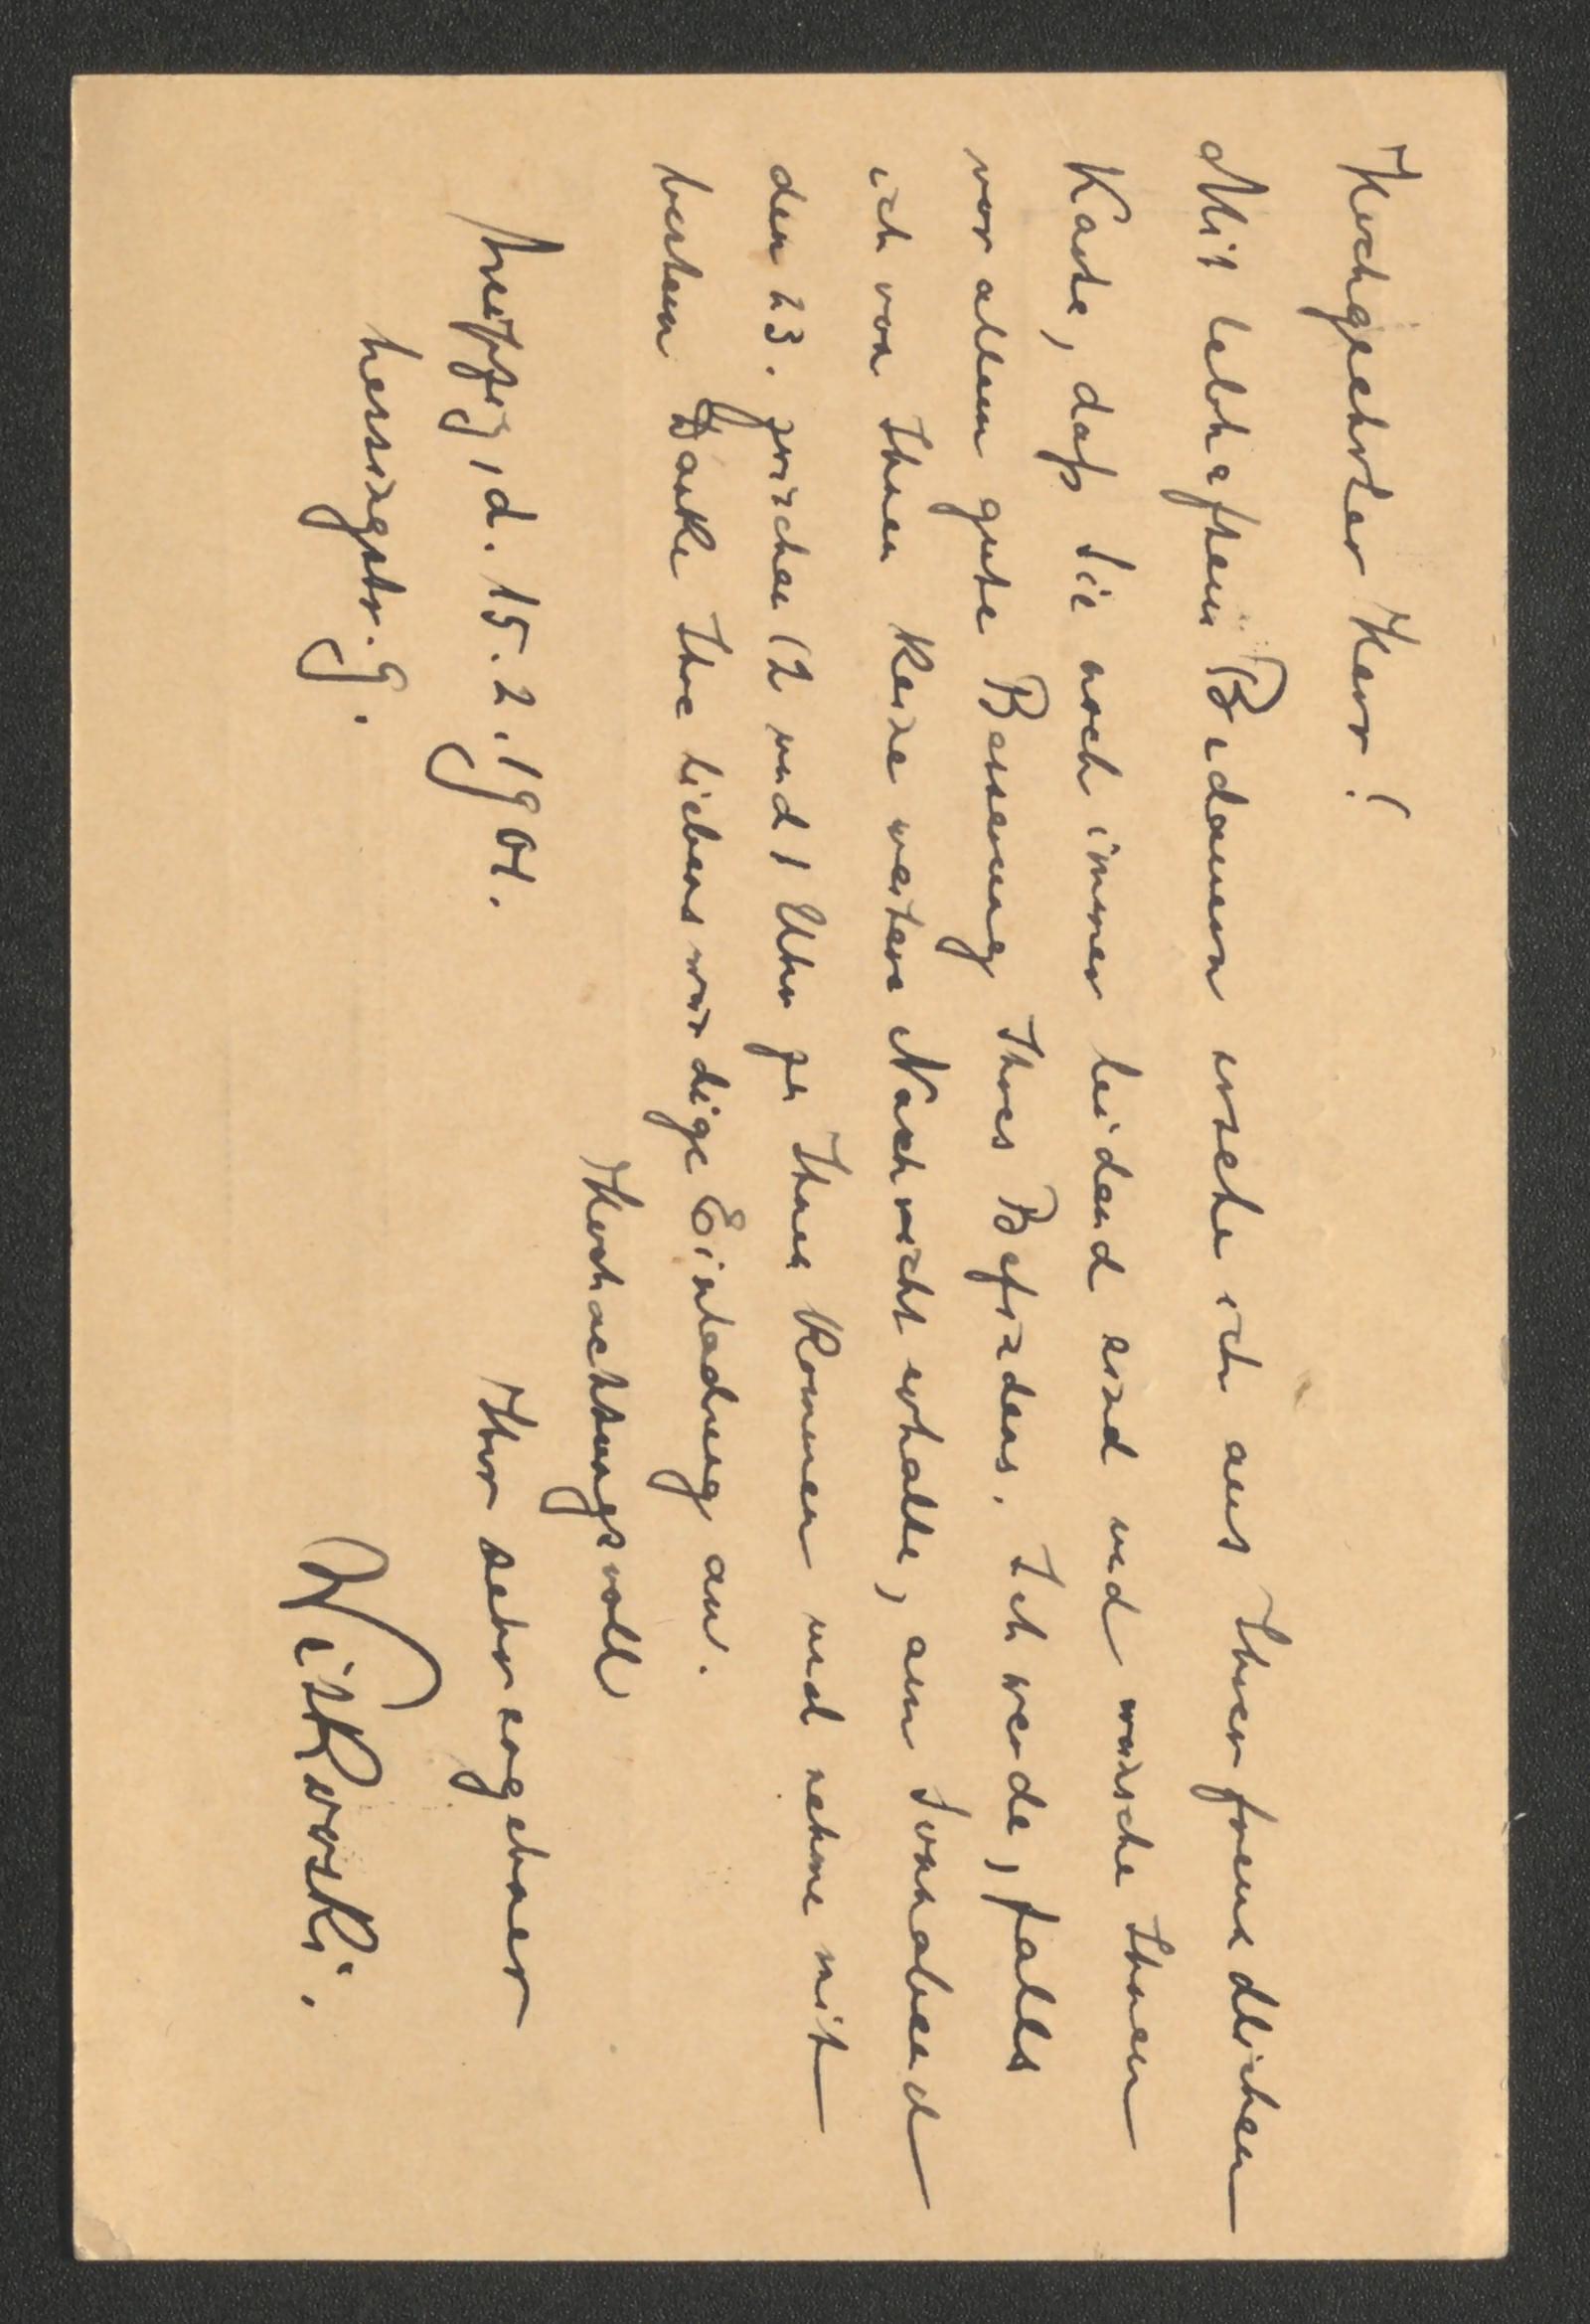 Hochgeehrter Herr!
Mit lebhaftem Bedauern ersehe ich aus Ihrer freundlichen
Karte, daß Sie noch immer leidend sind und wünsche Ihnen
vor allem gute Besserung Ihres Befindens. Ich werde, falls
ich von Ihnen keine weitere Nachricht erhalte, am Sonnabend
den 23. zwischen 12 und 1 Uhr zu Ihnen kommen und nehme mit
bestem Danke Ihre liebenswürdige Einladung an.
Hochachtungsvoll
Ihr sehr ergebener
Leipzig, d. 15. 2. 1901.
Lessingstr. 9.
Witkowski.